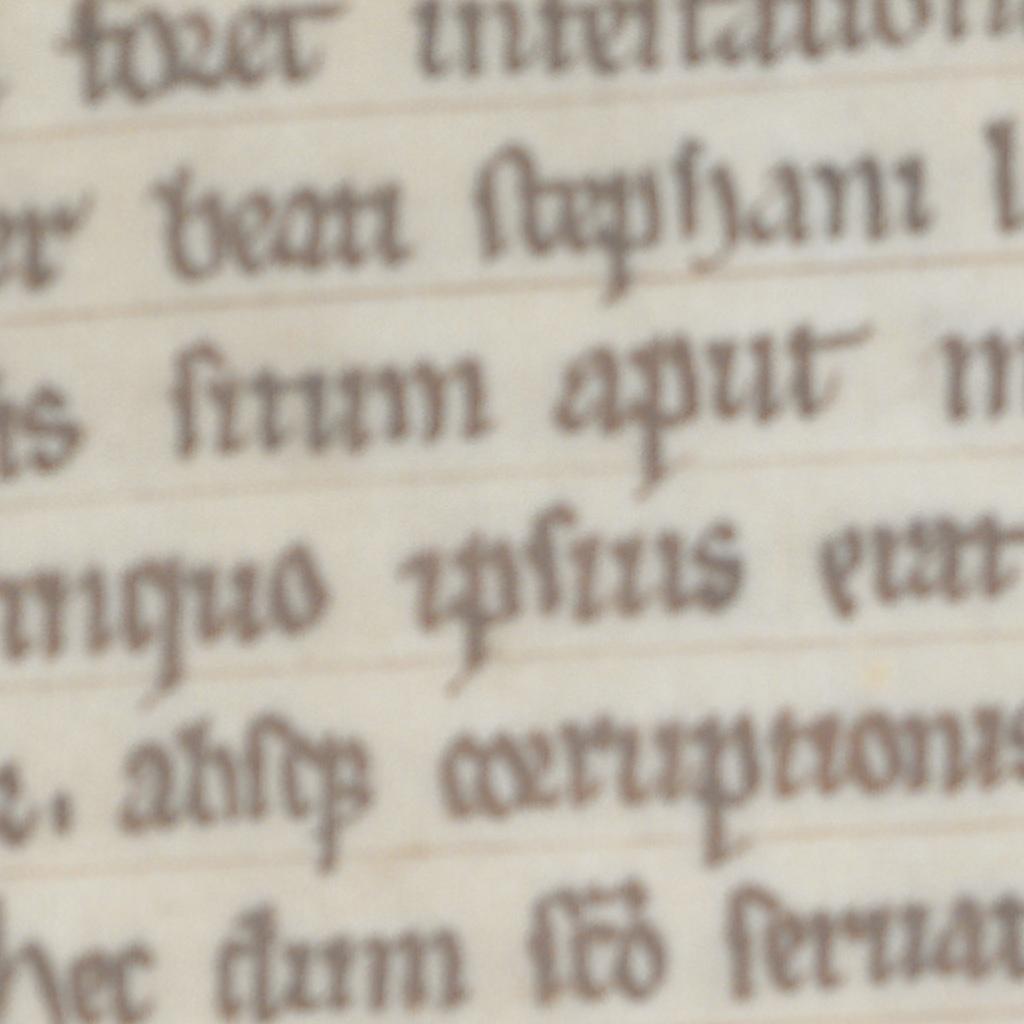 foret infestation
er beati stephani
is situm aput
inquo ipsius erat
absq; corruptionis
hec dum sc̄o seruat